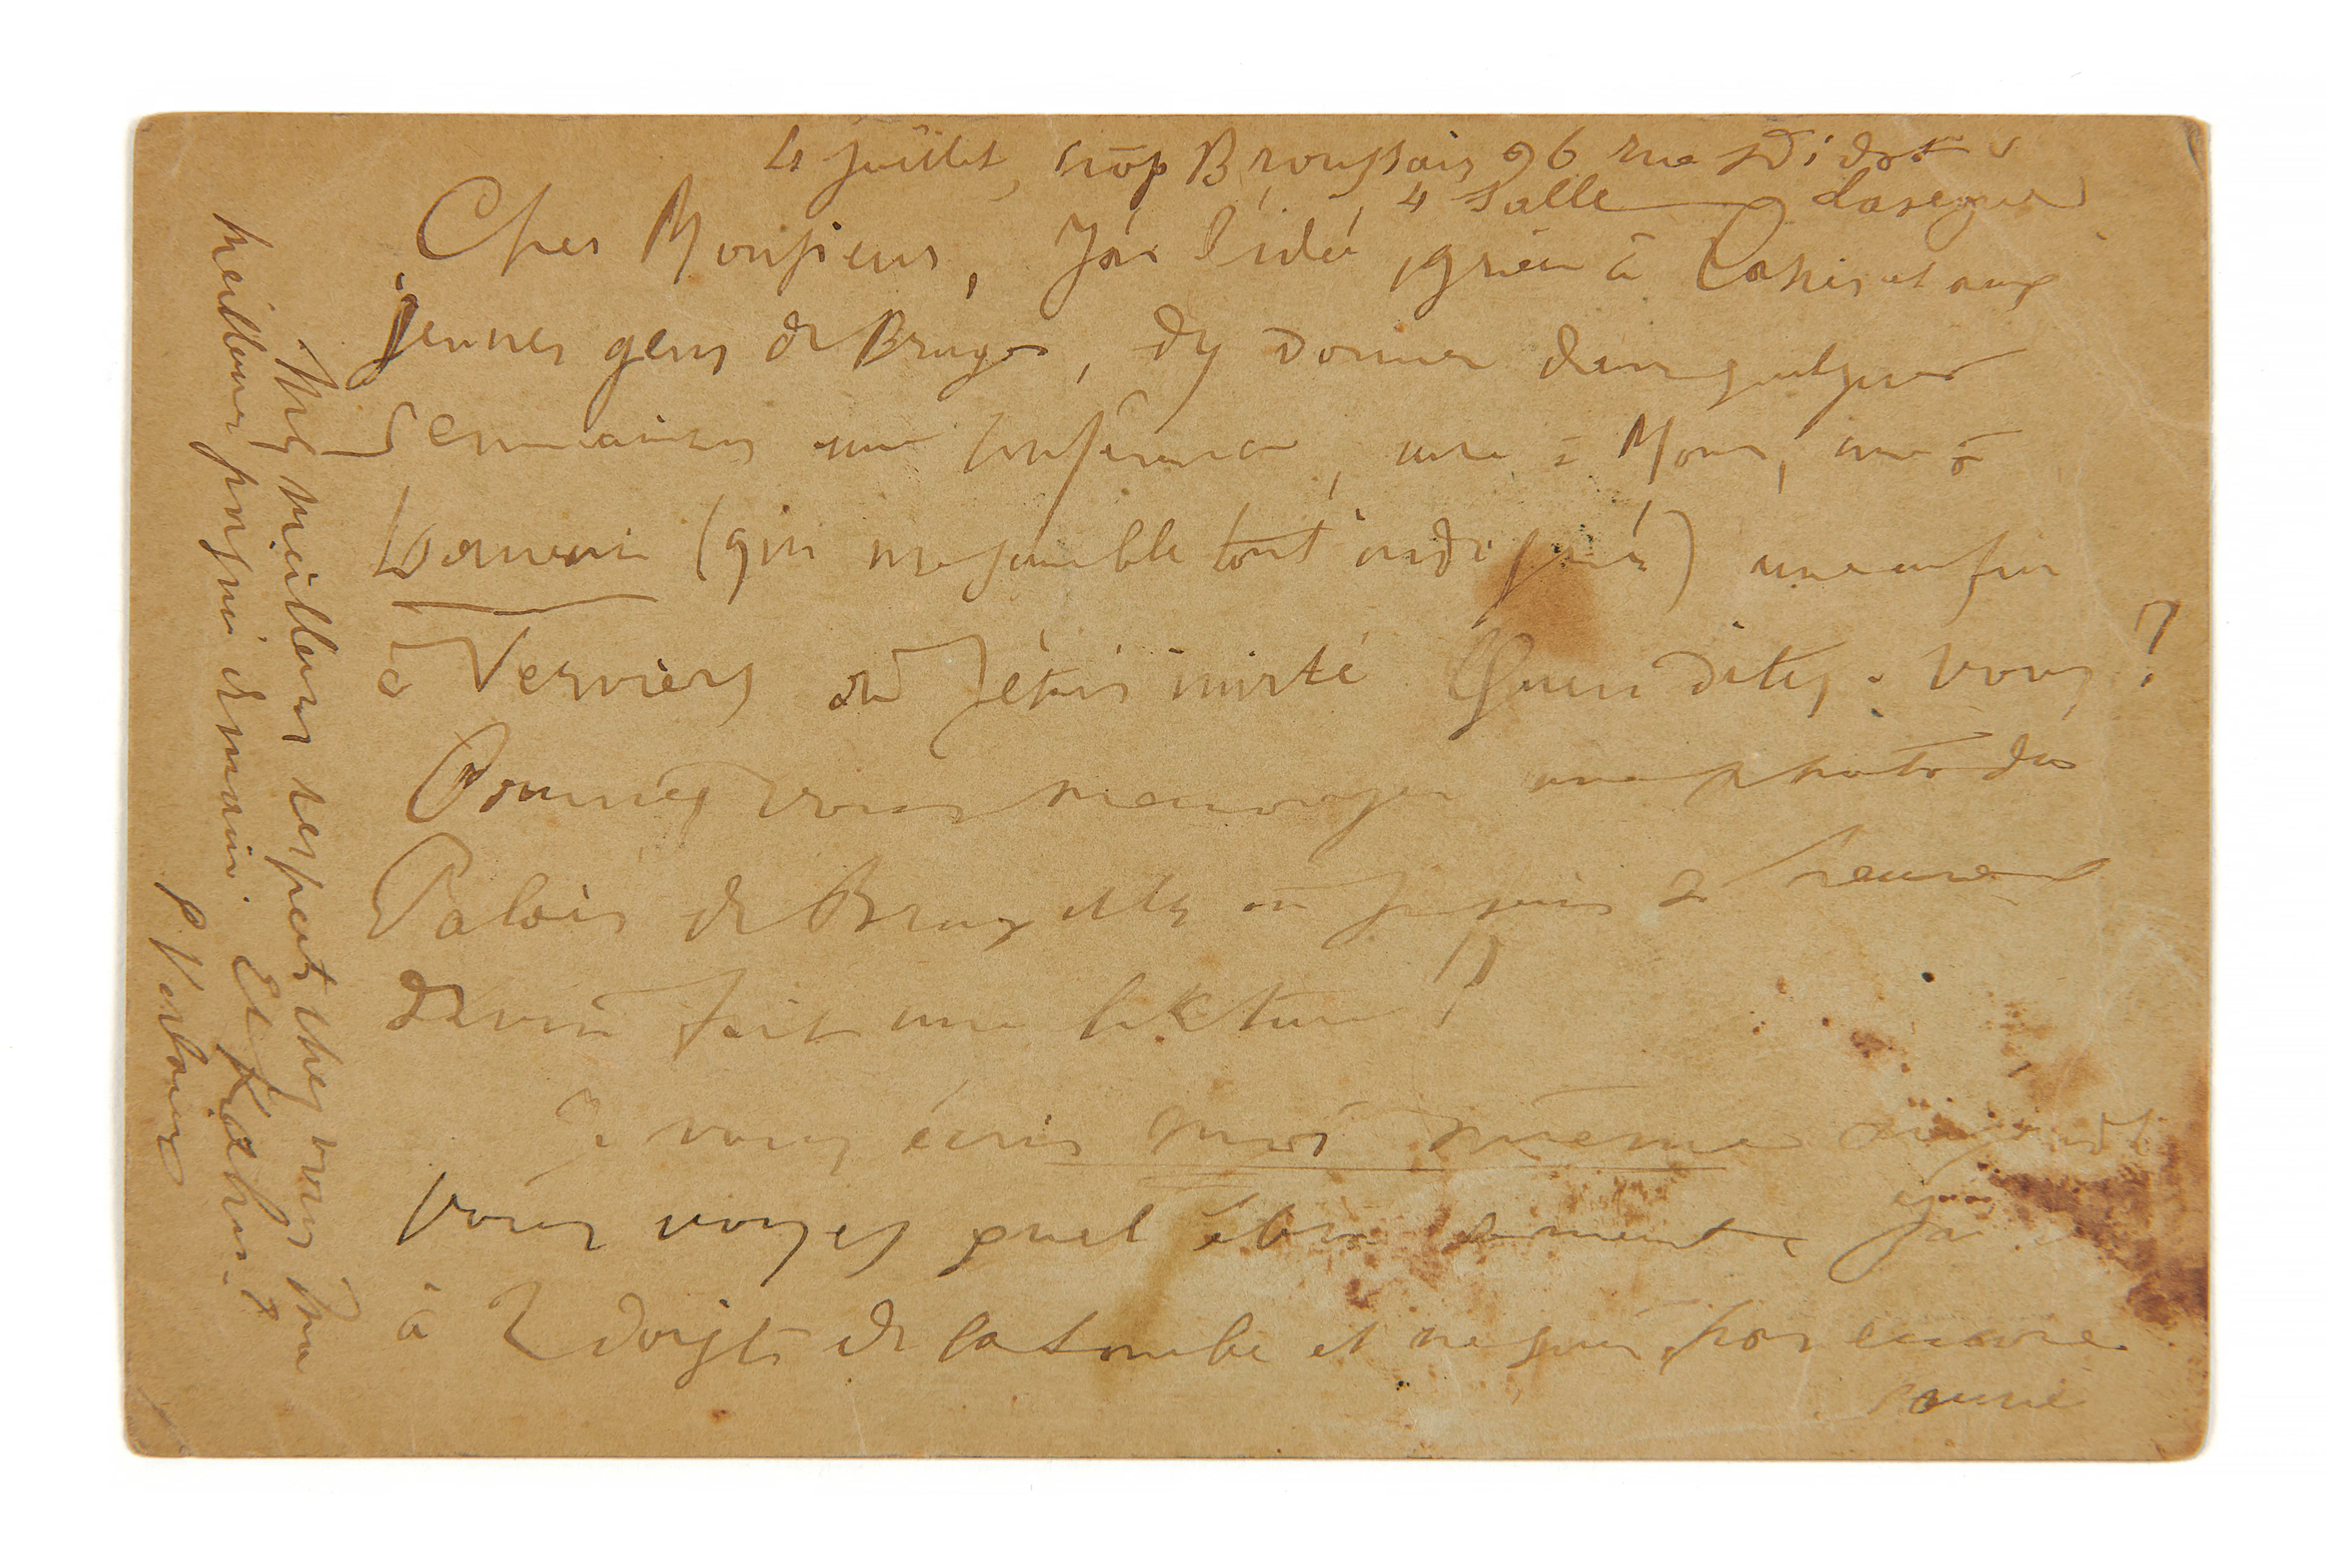 4 juillet, hôp Broussais 96 rue Didot
4 salle Lasegue
Cher Monsieur, J'ai l'idée, grâce à et aux
jeunes gens de Bruges, d'y donner dans quelques
semaines une conférence, une à Mons, une à
Louvain (qui me semble tout indiqué) une enfin
à Verviers où j'étais invité Qu'en dites-vous?
Pourriez vous m'envoyer une photo du
Palais de Bruxelles où je suis
fait une lecture?
Je vous écris moi même
Vous voyez quel J'ai
à 2 doigts de la tombe et ne suis pas encore
Mes meilleurs respects chez vous
meilleure poignée de main. Et Kahn?
P. Verlaine